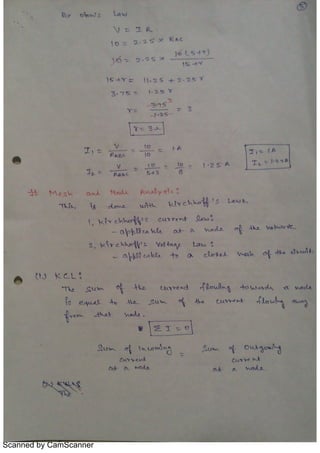 5
By ohm's Law
V = I R
10 = 2.25 × RAC
10 = 2.25 × 10(5+r) / 15+r
15+r = 11.25 + 2.25 r
3.75 = 1.25 r
r = 3.75 / 1.25 = 3
r = 3Ω
I1 = V / RABC = 10 / 10 = 1A
I1 = 1A
I2 = V / RABC = 10 / 5+3 = 10 / 8 = 1.25 A
I2 = 1.25A
# Mesh and Node Analysis:
This is done with kirchhoff's Laws.
1, kirchhoff's current law:
- applicable at a node of the network.
2, kirchhoff's Voltage Law:
- applicable to a closed mesh of the circuit.
(1.) K.C.L:
The sum of the current flowing towards a node
is equal to the sum of the current flowing away
from that node.
Σ I = 0
Sum of Incoming current at a node = Sum of Outgoing current at a node
Scanned by CamScanner